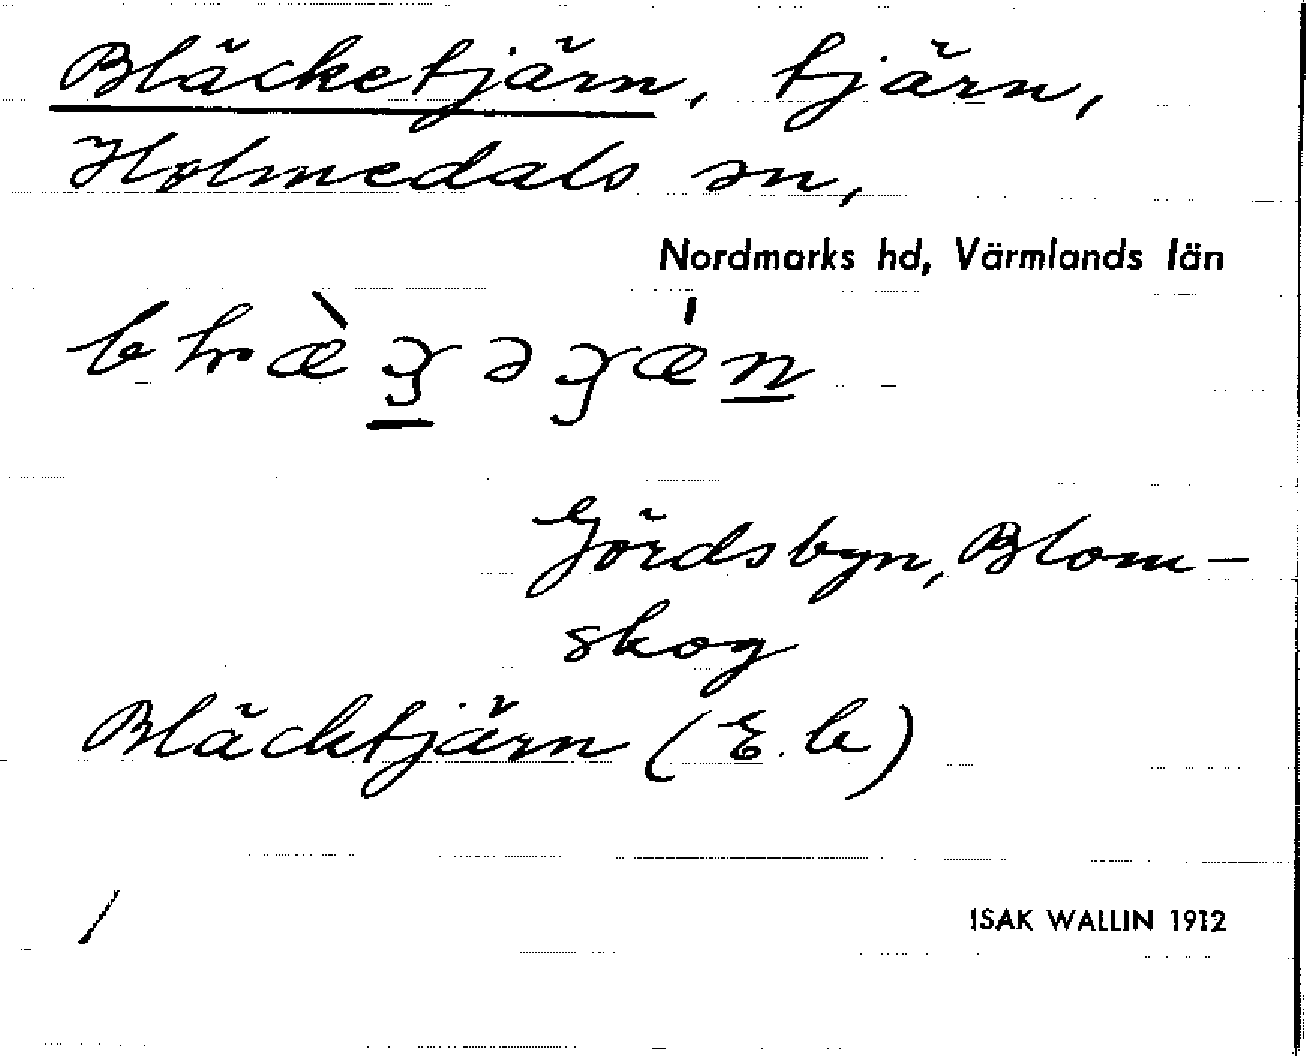 Bläcketjärn, tjärn,
Holmedals sn,
Nordmarks hd, Värmlands län
Gördsbyn, Blom-
skog
Bläcktjärn (E.b)
/
ISAK WALLIN 1912